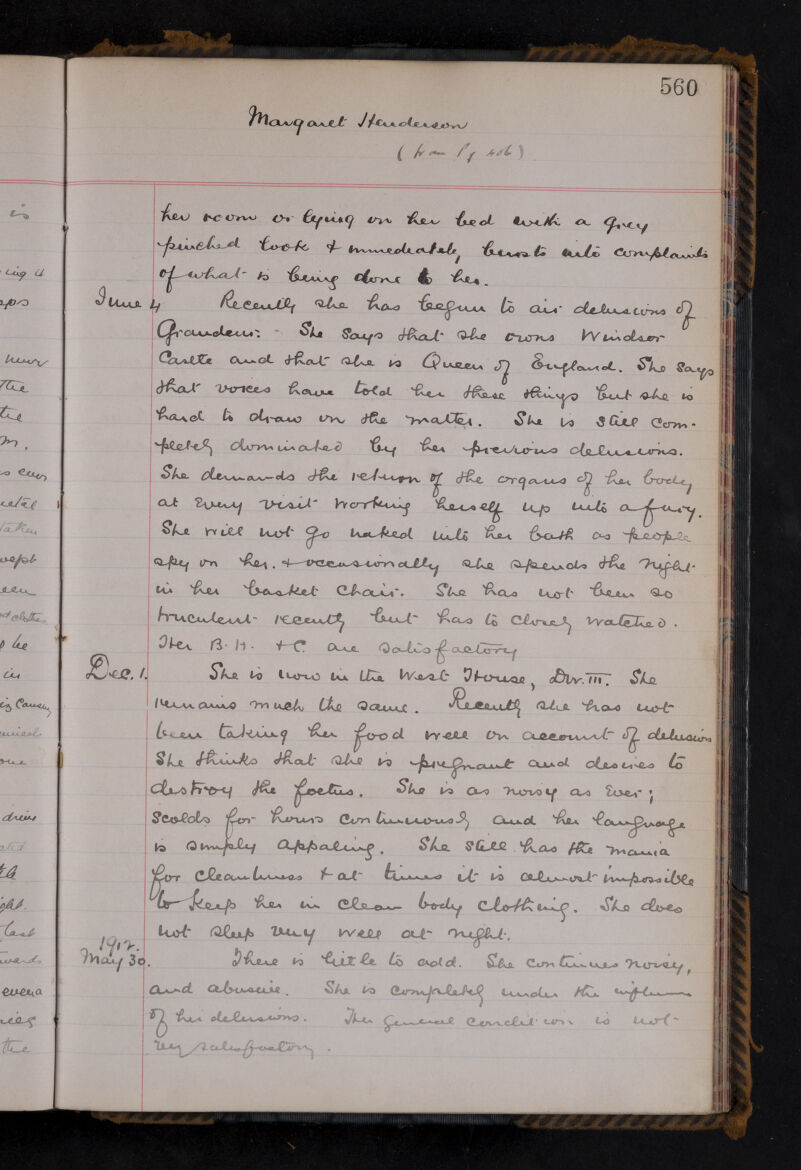 560
Margaret Henderson
(from Pg 406)
her room or lying on her bed with a grey
pinched look & immediately bursts into complaints
of what is being done to her.
June 4 Recently she has begun to air delusions of
Grandeur. - She says that she owns Windsor
Castle and that she is Queen of England. She says
that voices have told her these things but she is
hard to draw on the matter. She is still com-
pletely dominated by her previous delusions.
She demands the return of the organs of her body
at every visit working herself up into a fury.
She will not go naked into her bath as people
spy on her. & occasionally she spends the night
in her basket chair. She has not been so
truculent recently but has to closely watched.
Her B. H. & C. are satisfactory
Dec. 1. She is now in the West House, Div. III. She
remains much the same. Recently she has not
been taking her food well on account of delusions
She thinks that she is pregnant and desires to
destroy the foetus. She is as noisy as ever;
scolds for hours continuously and her language
is simply appaling. She still has the mania
for cleanliness & at times it is almost impossible
to keep her in clean body clothing. She does
not sleep very well at night.
1912.
May 30. There is little to add. She continues noisy,
and abusive. She is completely under the influence
of her delusions. Her general condition is not
very satisfactory.